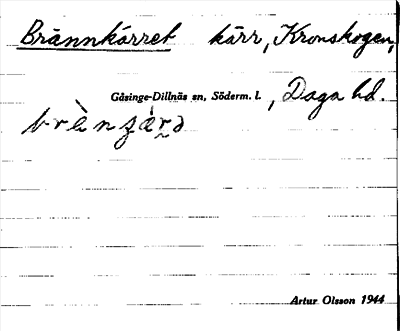 Brännkärret kärr, Kronskogen,
Gåsinge-Dillnäs sn, Söderm. l., Daga hd.
brènʒár̰ə
Artur Olsson 1944